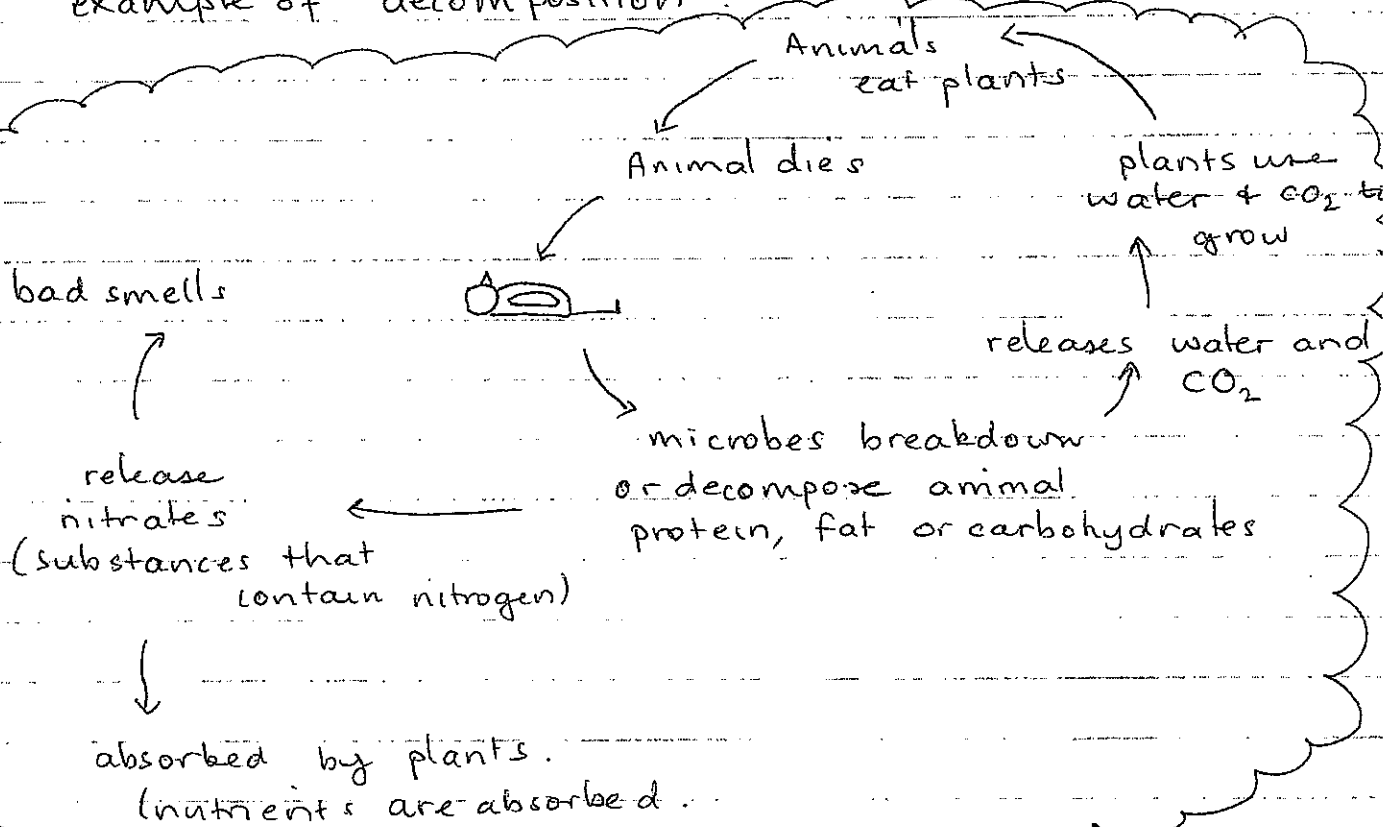 example of decomposition.
Animals
eat plants
Animal dies
plants use
water & CO₂ to
grow
bad smells
releases water and
CO₂
microbes breakdown
or decompose animal
protein, fat or carbohydrates
release
nitrates
(substances that
contain nitrogen)
absorbed by plants.
(nutrients are absorbed.